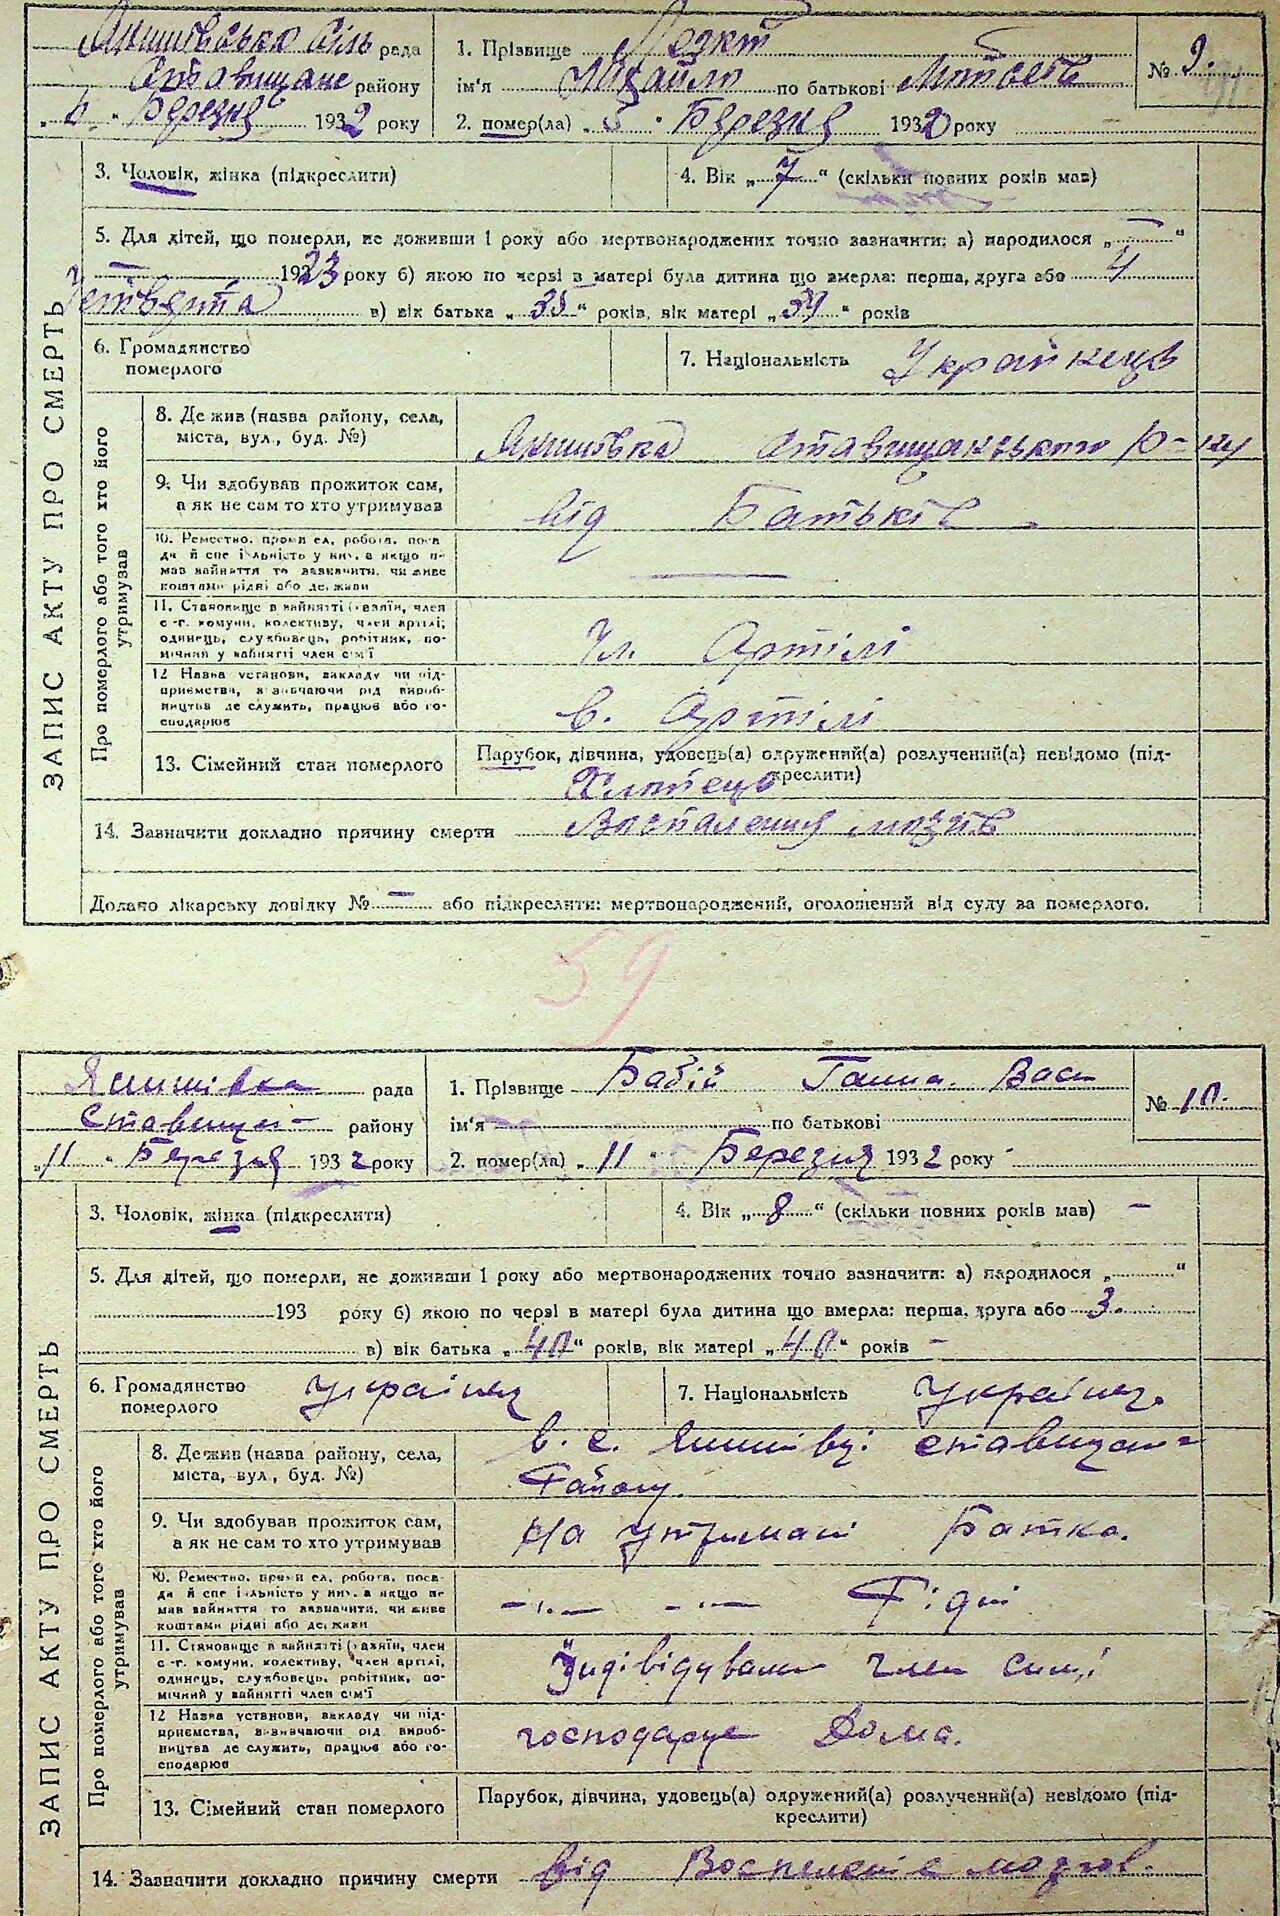 рада
1. Прізвище
№ 9.
району
ім'я Михайло по батькові
„ 6 “ Березня 1932 року
2. помер(ла) „ 5 “ Березня 1932 року
3. Чоловік, жінка (підкреслити)
4. Вік „ 7 “ (скільки повних років мав)
5. Для дітей, що померли, не доживши 1 року або мертвонароджених точно зазначити: а) народилося „ — “
— 1923 року б) якою по черзі в матері була дитина що вмерла: перша, друга або 4
Четверта в) вік батька „ 35 “ років, вік матері „ 34 “ років
6. Громадянство померлого
7. Національність Українець
ЗАПИС АКТУ ПРО СМЕРТЬ
Про померлого або того хто його утримував
8. Де жив (назва району, села,
міста, вул., буд. №)
Янишівка Ставищанського Р-ну
9. Чи здобував прожиток сам,
а як не сам то хто утримував
від Батьків
10. Ремество, промисел, робота, поса-
да й спеціальність у них, а якщо не
мав зайняття то зазначити, чи живе
коштами рідні або держави
—
11. Становище в зайнятті (хазяїн, член
с-г. комуни, колективу, член артілі,
одинець, службовець, робітник, по-
мічний у зайнятті член сім'ї
Чл. Артілі
12 Назва установи, закладу чи під-
приємства, зазначаючи рід вироб-
ництва де служить, працює або го-
сподарює
в. Артілі
13. Сімейний стан померлого
Парубок, дівчина, удовець(а) одружений(а) розлучений(а) невідомо (під-
креслити)
Хлопець
14. Зазначити докладно причину смерти Воспаления мозків
Додано лікарську довідку № — або підкреслити: мертвонароджений, оголошений від суду за померлого.
59
Янишівка рада
1. Прізвище Бабій Ганна Вас
№ 10.
Ставищан- району
ім'я по батькові
„ 11 “ Березня 1932 року
2. помер(ла) „ 11 “ Березня 1932 року
3. Чоловік, жінка (підкреслити)
4. Вік „ 8 “ (скільки повних років мав) —
5. Для дітей, що померли, не доживши 1 року або мертвонароджених точно зазначити: а) народилося „ “
193 року б) якою по черзі в матері була дитина що вмерла: перша, друга або 3.
в) вік батька „ 40 “ років, вік матері „ 40 “ років —
6. Громадянство померлого Україн
7. Національність Україн.
ЗАПИС АКТУ ПРО СМЕРТЬ
Про померлого або того хто його утримував
8. Де жив (назва району, села,
міста, вул., буд. №)
в. с. Янишівці Ставищан-
Району.
9. Чи здобував прожиток сам,
а як не сам то хто утримував
На утримані Батка.
10. Ремество, промисел, робота, поса-
да й спеціальність у них, а якщо не
мав зайняття то зазначити, чи живе
коштами рідні або держави
-"- -"- Рідні
11. Становище в зайнятті (хазяїн, член
с-г. комуни, колективу, член артілі,
одинець, службовець, робітник, по-
мічний у зайнятті член сім'ї
член
12 Назва установи, закладу чи під-
приємства, зазначаючи рід вироб-
ництва де служить, працює або го-
сподарює
господарує Дома.
13. Сімейний стан померлого
Парубок, дівчина, удовець(а) одружений(а) розлучений(а) невідомо (під-
креслити)
14. Зазначити докладно причину смерти від мозгов.